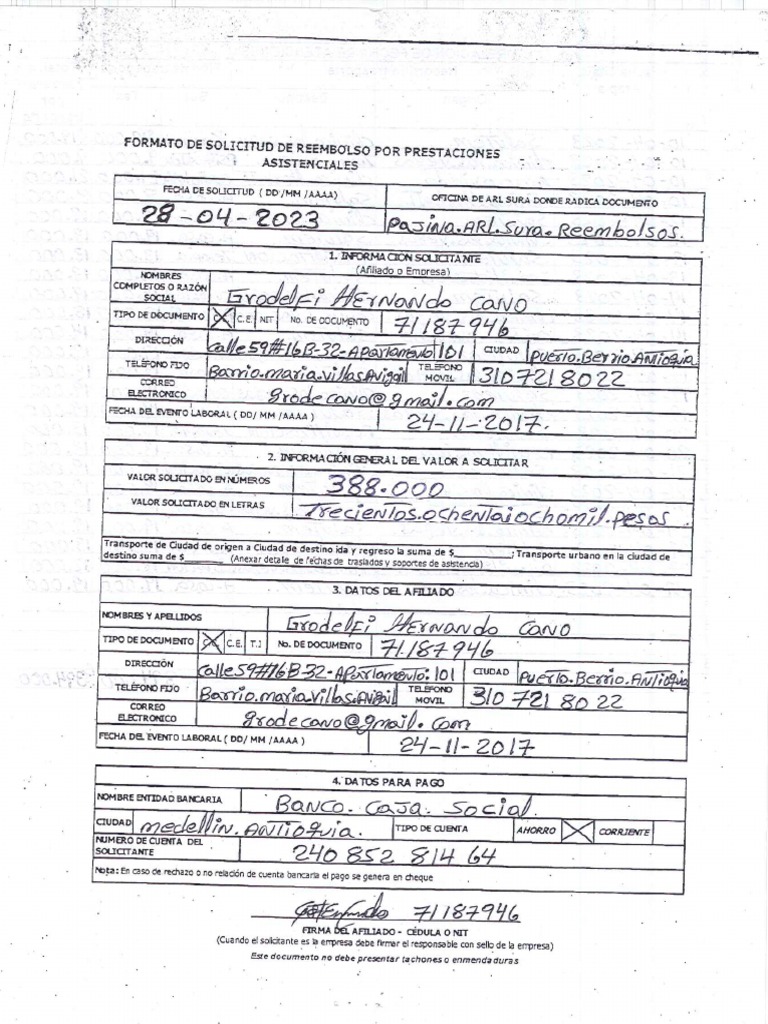 FORMATO DE SOLICITUD DE REEMBOLSO POR PRESTACIONES
ASISTENCIALES
FECHA DE SOLICITUD ( DD/MM /AAAA) OFICINA DE ARL SURA DONDE RADICA DOCUMENTO
28-04-2023 Pajina.ARL.Sura.Reembolsos.
1. INFORMACIÓN SOLICITANTE
(Afiliado o Empresa)
NOMBRES COMPLETOS O RAZÓN SOCIAL Grodelfi Hernando Cano
TIPO DE DOCUMENTO C.C. C.E. NIT No. DE DOCUMENTO 71187946
DIRECCIÓN Calle 59#16B-32-Apartamento 101 CIUDAD Puerto.Berrio.Antioquia
TELÉFONO FIJO Barrio.maria.villas.Avigail TELÉFONO MOVIL 3107218022
CORREO ELECTRONICO grodecano@gmail.com
FECHA DEL EVENTO LABORAL ( DD/ MM /AAAA ) 24-11-2017.
2. INFORMACIÓN GENERAL DEL VALOR A SOLICITAR
VALOR SOLICITADO EN NÚMEROS 388.000
VALOR SOLICITADO EN LETRAS Trecientos.ochentaiochomil.pesos
Transporte de Ciudad de origen a Ciudad de destino ida y regreso la suma de $________; Transporte urbano en la ciudad de
destino suma de $______ (Anexar detalle de fechas de traslados y soportes de asistencia)
3. DATOS DEL AFILIADO
NOMBRES Y APELLIDOS Grodelfi Hernando Cano
TIPO DE DOCUMENTO C.C. C.E. T.I No. DE DOCUMENTO 71.187946
DIRECCIÓN Calle 59#16B-32-Apartamento.101 CIUDAD Puerto.Berrio.Antioquia
TELÉFONO FIJO Barrio.maria villas.Avigail TELÉFONO MOVIL 310 721 8022
CORREO ELECTRONICO grodecano@gmail.com
FECHA DEL EVENTO LABORAL ( DD/ MM /AAAA ) 24-11-2017
4. DATOS PARA PAGO
NOMBRE ENTIDAD BANCARIA Banco. Caja. Social.
CIUDAD medellin.Antioquia. TIPO DE CUENTA AHORRO CORRIENTE
NUMERO DE CUENTA DEL SOLICITANTE 240 852 814 64
Nota: En caso de rechazo o no relación de cuenta bancaria el pago se genera en cheque
71187946
FIRMA DEL AFILIADO - CÉDULA O NIT
(Cuando el solicitante es la empresa debe firmar el responsable con sello de la empresa)
Este documento no debe presentar tachones o enmendaduras